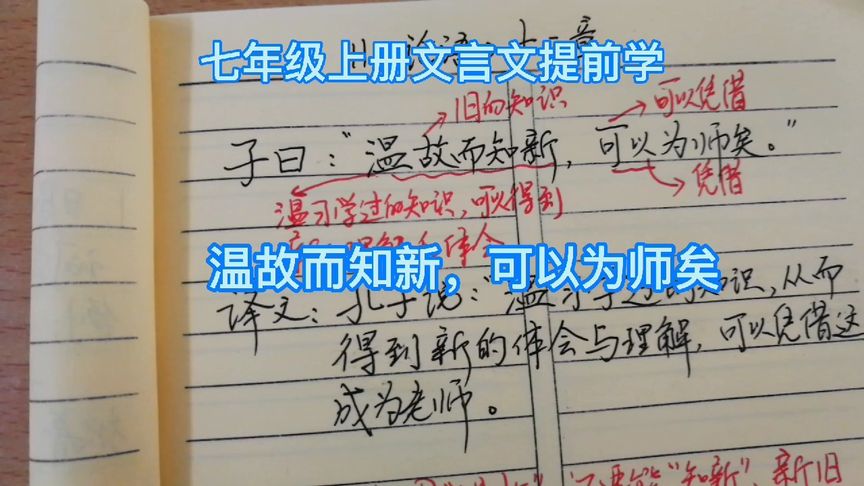 七年级上册文言文提前学
旧的知识 可以凭借
子曰：“温故而知新，可以为师矣。”
凭借
温习学过的知识，可以得到
体会
温故而知新，可以为师矣
译文：孔子说：“温习学过的知识，从而
得到新的体会与理解，可以凭借这
成为老师。
“知新”，新旧